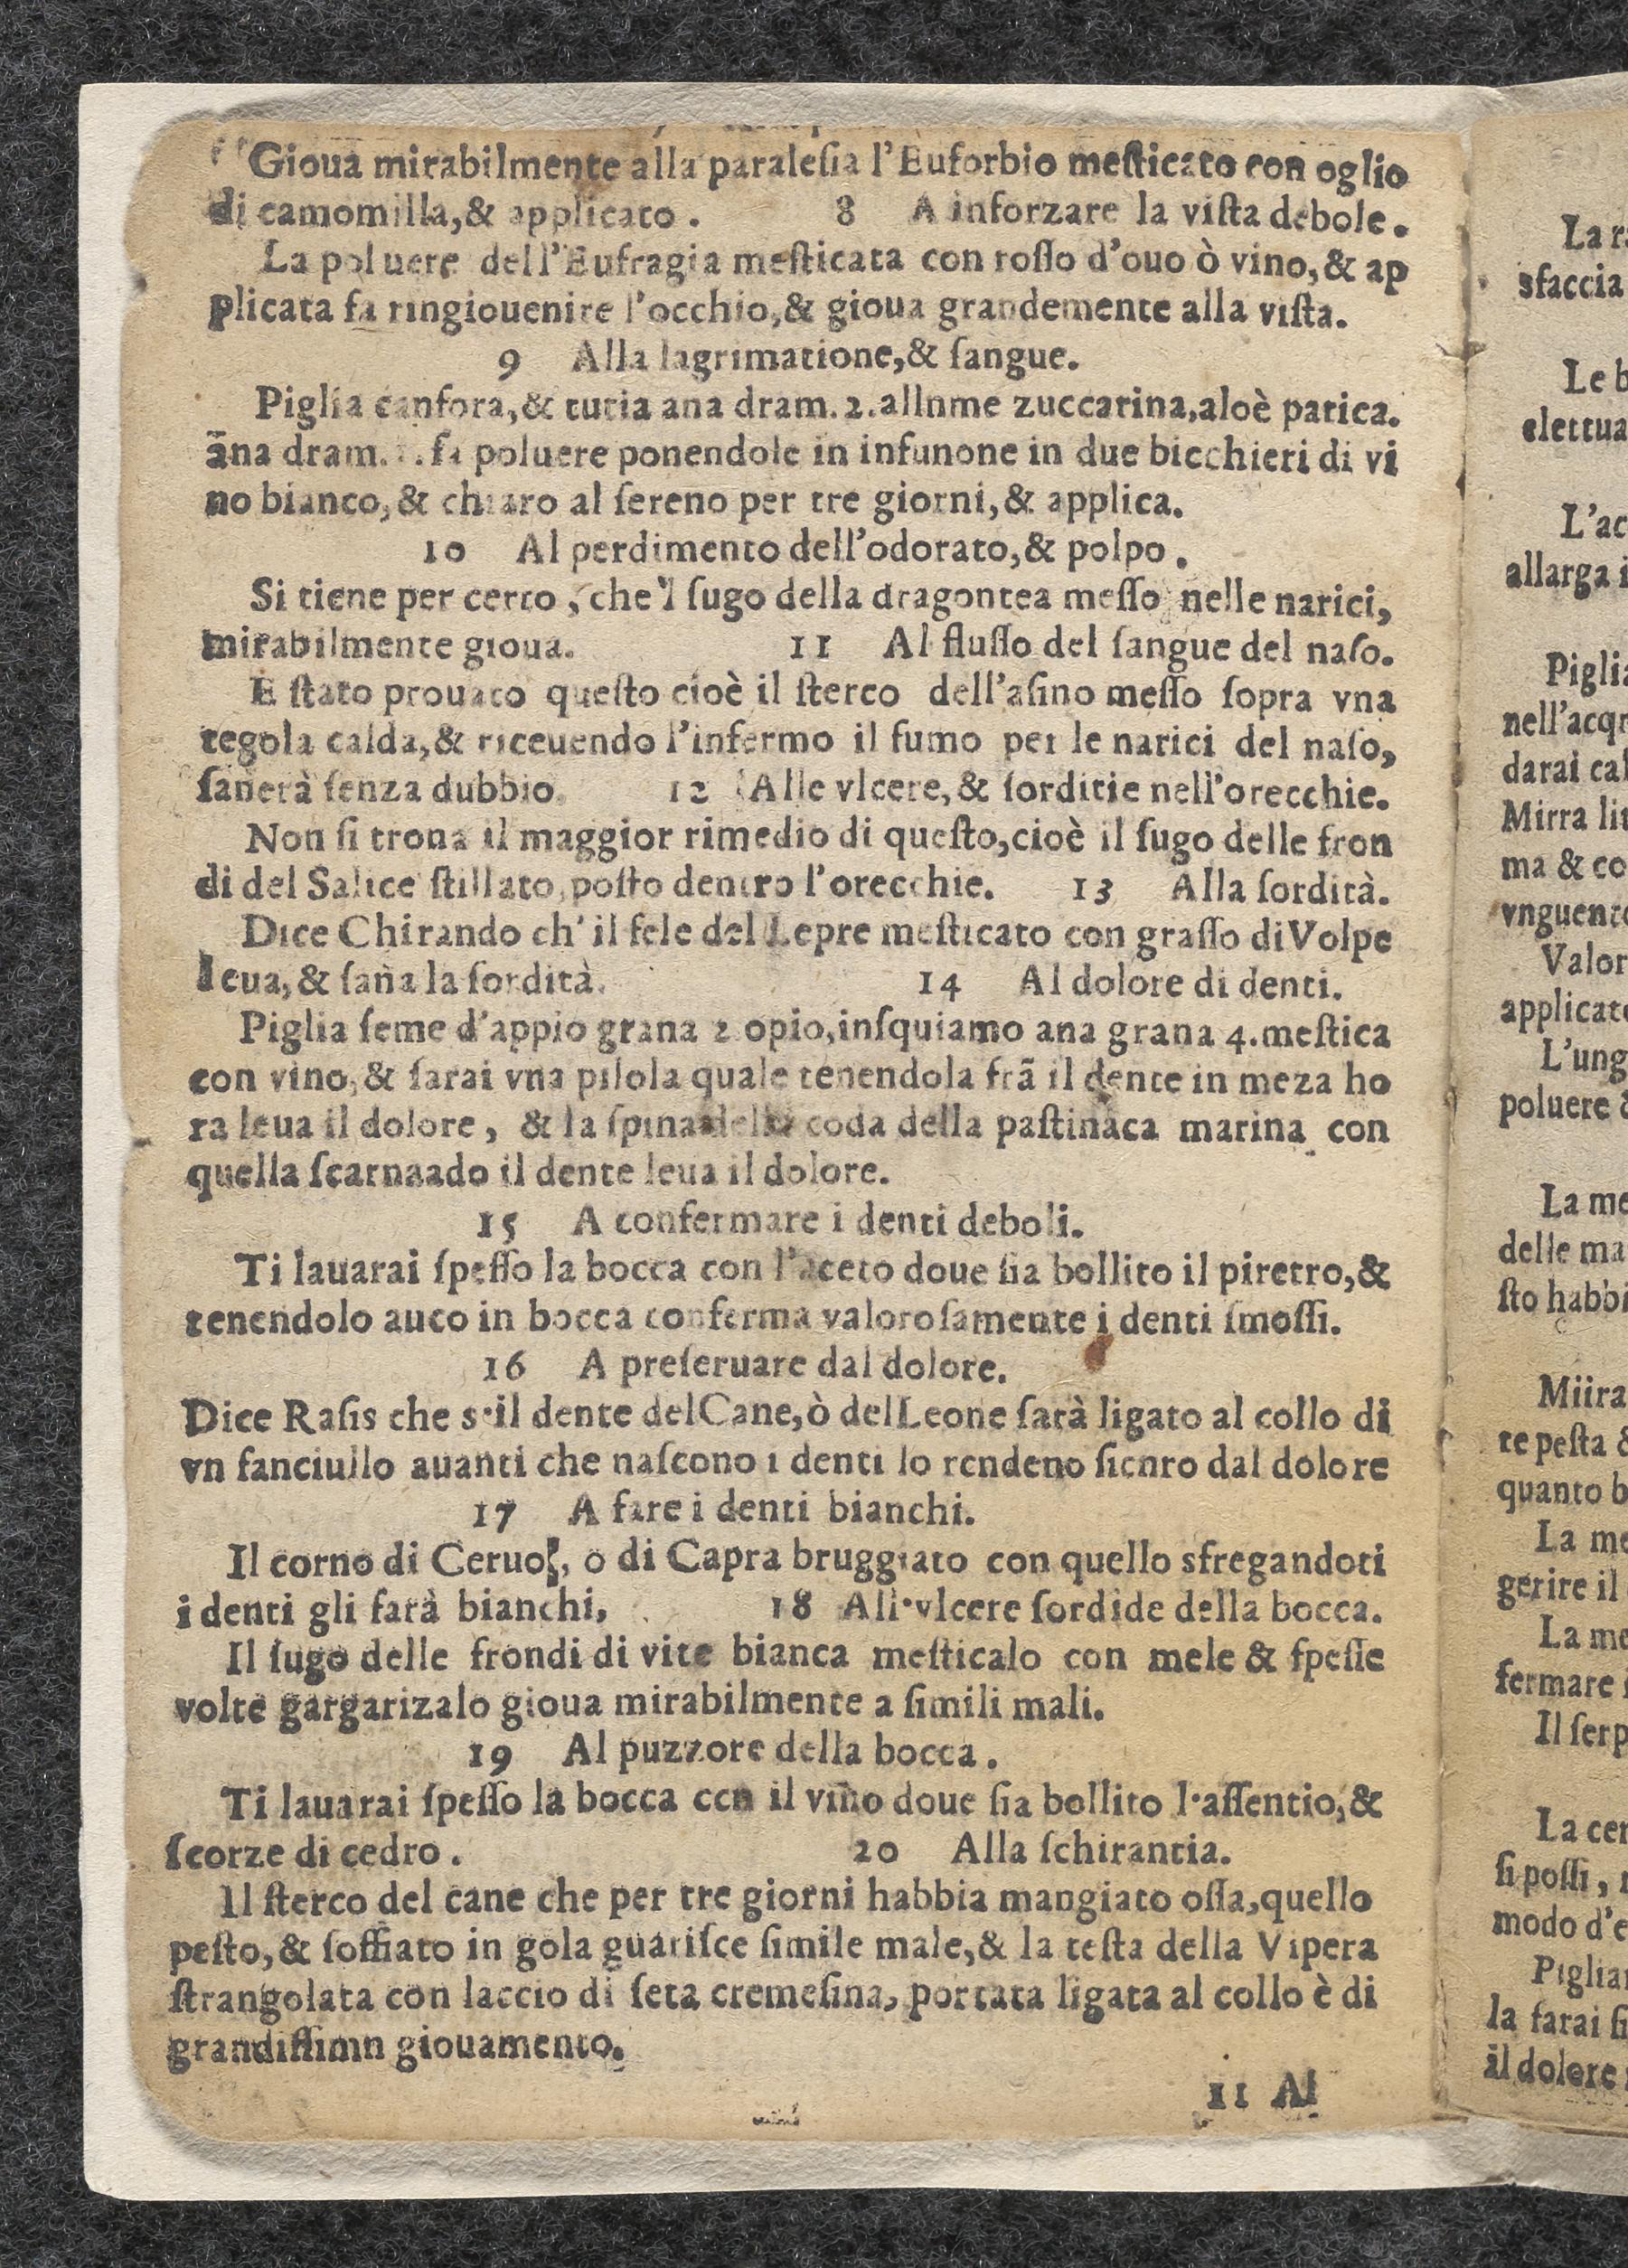 Gioua mirabilmente alla paraleſia l'Euforbio meſticato con oglio
di camomilla,& applicato. 8 A inforzare la viſta debole.
La poluere dell'Eufragia meſticata con roſſo d'ouo ò vino,& ap
plicata fa ringiouenire l'occhio,& gioua grandemente alla viſta.
9 Alla lagrimatione,& ſangue.
Piglia canfora,& tutia ana dram. 2. allnme zuccarina,aloè patica.
āna dram. fa poluere ponendole in infunone in due bicchieri di vi
no bianco,& chiaro al ſereno per tre giorni,& applica.
10 Al perdimento dell'odorato,& polpo.
Si tiene per certo, che'l ſugo della dragontea meſſo nelle narici,
mirabilmente gioua. 11 Al fluſſo del ſangue del naſo.
E ſtato prouato queſto cioè il ſterco dell'aſino meſſo ſopra vna
tegola calda,& riceuendo l'infermo il fumo per le narici del naſo,
ſanerà ſenza dubbio. 12 Alle vlcere,& ſorditie nell'orecchie.
Non ſi troua il maggior rimedio di queſto,cioè il ſugo delle fron
di del Salice ſtillato,poſto dentro l'orecchie. 13 Alla ſordità.
Dice Chirando ch'il fele del Lepre meſticato con graſſo di Volpe
leua,& ſana la ſordità. 14 Al dolore di denti.
Piglia ſeme d'appio grana 2 opio,inſquiamo ana grana 4. meſtica
con vino,& farai vna pilola quale tenendola frã il dente in meza ho
ra leua il dolore, & la ſpina della coda della paſtinaca marina con
quella ſcarnaado il dente leua il dolore.
15 A confermare i denti deboli.
Ti lauarai ſpeſſo la bocca con l'aceto doue ſia bollito il piretro,&
tenendolo auco in bocca conferma valoroſamente i denti ſmoſſi.
16 A preſeruare dal dolore.
Dice Raſis che s'il dente del Cane,ò del Leone ſarà ligato al collo di
vn fanciullo auanti che naſcono i denti lo rendeno ſicuro dal dolore
17 A fare i denti bianchi.
Il corno di Ceruo, o di Capra bruggiato con quello sfregandoti
i denti gli farà bianchi, 18 All'vlcere ſordide della bocca.
Il ſugo delle frondi di vite bianca meſticalo con mele & ſpeſſe
volte gargarizalo gioua mirabilmente a ſimili mali.
19 Al puzzore della bocca.
Ti lauarai ſpeſſo la bocca con il vino doue ſia bollito l'aſſentio,&
ſcorze di cedro. 20 Alla ſchirantia.
Il ſterco del cane che per tre giorni habbia mangiato oſſa,quello
peſto,& ſoffiato in gola guariſce ſimile male,& la teſta della Vipera
ſtrangolata con laccio di ſeta cremeſina, portata ligata al collo è di
grandiſſimn giouamento.
11 Al
La
sfaccia
Le
elettua
L'ac
allarga
Piglia
nell'acq
darai cal
Mirra
ma & co
vnguento
Valor
applicato
L'ung
poluere
La me
delle ma
ſto habbi
Miira
te peſta
quanto b
La me
gerire il
La me
fermare
Il ſerp
La cen
ſi poſſi,
modo d'e
Piglia
la farai
il dolore